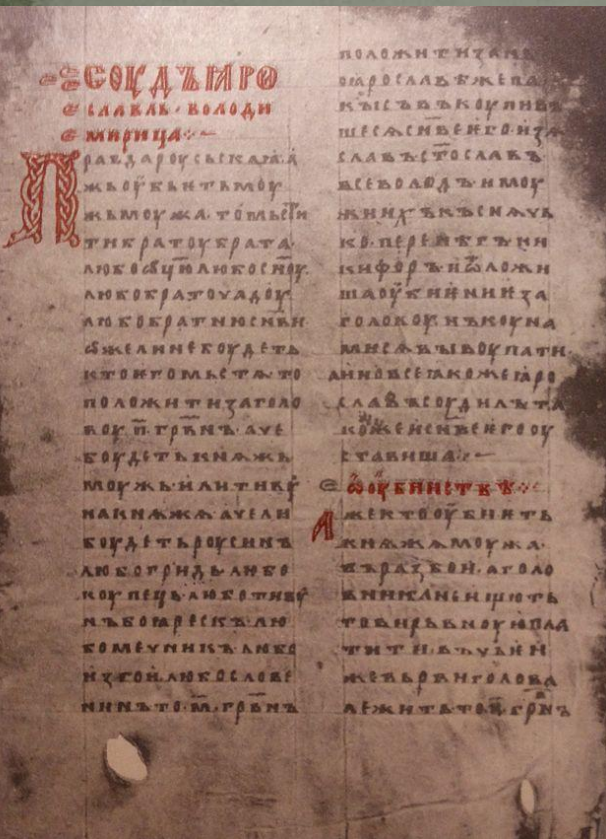 СОУДЪ ꙖРО
СЛАВЛЬ · ВОЛОДИ
МИРИЦА ⁘~
Правда роусьскаꙗ · а
жь оубьить моу
жь моужа · то мьсти
ти братоу брата ·
любо ѡц҃ю любо сн҃оу ·
любо братоучадоу ·
любо братню сн҃ви
ѡже ли не боудеть
кто ѥго мьстѧ то
положити за голо
воу · п҃ · гр҃внъ · аче
боудеть кнѧжь
моужь или тивоу
на кнѧжѧ аче ли
боудеть роусинъ
любо гридь любо
коупець любо тивоу
нъ боꙗрескъ лю
бо мечникъ любо
изгои любо слове
нинъ то · м҃ · гр҃внъ
положити за нь
о ꙗрославѣ же па
кы съвъкоупивъ
шесѧ сн҃ве ѥго изѧ
славъ ст҃ославъ
всеволодъ и моу
жи ихъ къснѧчь
ко · перенѣгъ ни
кифоръ и ѿложи
ша оубиѥниѥ за
головоу нъ коуна
ми сѧ выкоупати ·
а ино все ꙗкоже ꙗро
славъ соудилъ та
коже и сн҃ве ѥго оу
ставиша ⁘~
Ѡ ОУБИИСТВѢ ⁘
Аже кто оубиить
кнѧжѧ моужа ·
въ разбои · а голо
вника не ищють
то вирьвноую пла
тити въ чьѥи
же вьрви голова
лежить то · п҃ · гр҃внъ